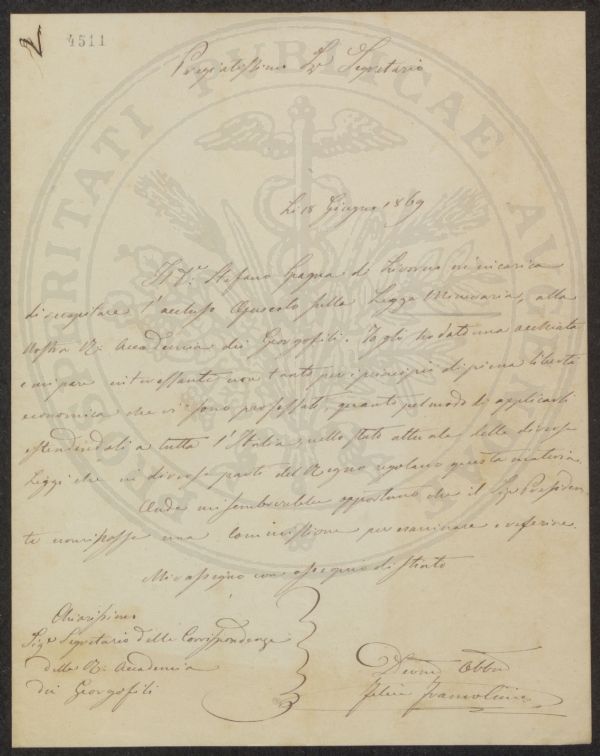 2 4511
Pregiatissimo Sigr Segretario
Li 18 Giugno 1869
Il Sr. Stefano Spagna di Livorno m'incarica
di recapitare l'accluso Opuscolo sulla Legge Mineraria, alla
nostra R. Accademia dei Georgofili. Vi gli ho dato una occhiata
e mi pare interessante non tanto per i principii di piena libertà
economica che vi sono professati, quanto pel modo di applicarli
estendendoli a tutta l'Italia nello stato attuale delle diverse
Leggi che in diverse parti del Regno regolano questa materia.
Onde mi sembrerebbe opportuno che il Sigr Presiden-
te nominasse una Commissione per esaminare e riferire.
Mi rassegno con ossequio distinto
Chiarissimo
Sigr Segretario delle Corrispondenze
della R. Accademia
dei Georgofili
Devmo Obbmo
Felice
PROSPERITATI PUBLICAE AUGENDAE